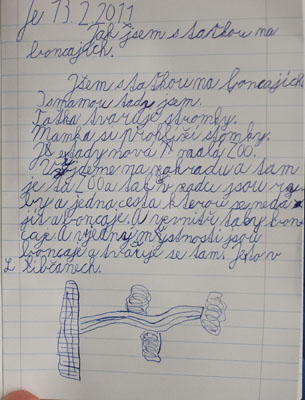 Je 13.2.2011
Jak jsem s taťkou na
boncajích.
Jsem s taťkou na boncajích.
I s mamou tady jsem.
Taťka tvaruje stromky.
Mamka si prohlíží stomky.
Je tady nová A malá ZOO.
jdeme na zahradu a tam
je ta ZOO a tak v padu jsou ry
by a jedna cesta kterou se nedá
jít a boncaje. A uvnitř taby bon
caje. A v jedný mýstnosti jsou
boncaje a tvářýje se tam. Jeto v
Libčanech.